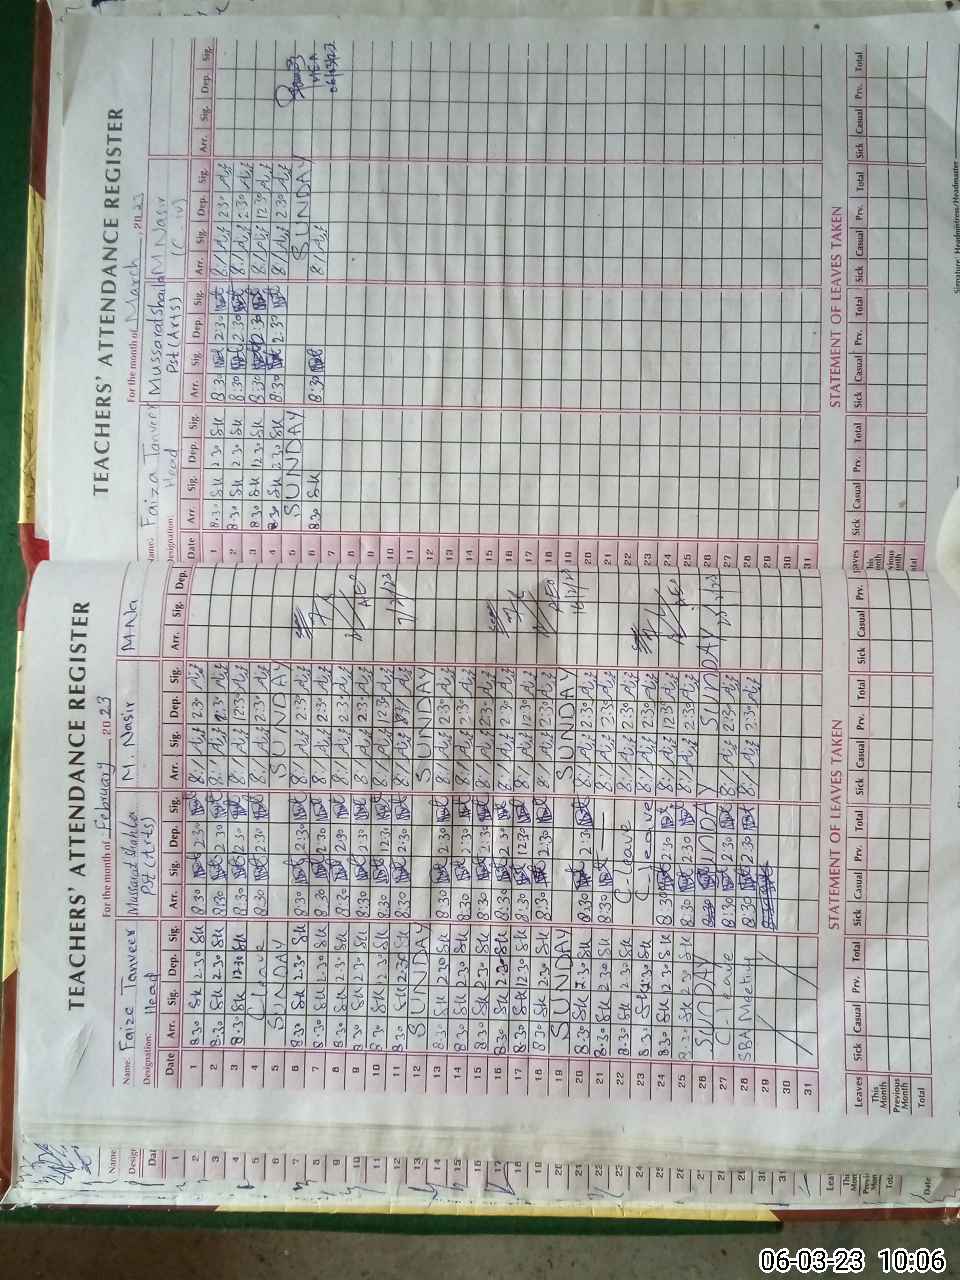 TEACHERS' ATTENDANCE REGISTER
For the month of February, 2023
Name: Faiza Tanveer Mussarat Shahla M. Nasir M.Na
Designation: Head Pst (Arts)
Date Arr. Sig. Dep. Sig. Arr. Sig. Dep. Sig. Arr. Sig. Dep. Sig. Arr. Sig. Dep.
1 8.30 SK 2.30 SK 8:30 2:30 8:1 2:30
2 8.30 SK 2.30 SK 8:30 2:30 8:1 2:30
3 8.30 SK 12.30 SK 8:30 12:30 8:1 12:30
4 C leave 8:30 2:30 8:1 2:30
5 SUNDAY SUNDAY
6 8.30 SK 2.30 SK 8:30 2:30 8:1 2:30
7 8.30 SK 2.30 SK 8:30 2:30 8:1 2:30
8 8.30 SK 2.30 SK 8:30 2:30 8:1 2:30
9 8.30 SK 2.30 SK 8:30 2:30 8:1 2:30
10 8.30 SK 12.30 SK 8:30 12:30 8:1 12:30
11 8.30 SK 2.30 SK 8:30 2:30 8:1
12 SUNDAY SUNDAY
13 8.30 SK 2.30 SK 8:30 2:30 8:1 2:30
14 8.30 SK 2.30 SK 8:30 2:30 8:1 2:30
15 8.30 SK 2.30 SK 8:30 2:30 8:1 2:30
16 8.30 SK 2.30 SK 8:30 2:30 8:1 2:30
17 8.30 SK 12.30 SK 8:30 12:30 8:1 12:30
18 8.30 SK 2.30 SK 8:30 2:30 8:1 2:30
19 SUNDAY SUNDAY
20 8.30 SK 2.30 SK 8:30 2:30 8:1 2:30
21 8.30 SK 2.30 SK 8:30 8:1 2:30
22 8.30 SK 2.30 SK C leave 8:1 2:30
23 8.30 SK 2.30 SK C leave 8:1 2:30
24 8.30 SK 2.30 SK 8:30 2:30 8:1 12:30
25 8.30 SK 2.30 SK 8:30 2:30 8:1 2:30
26 SUNDAY SUNDAY SUNDAY
27 C-leave 8:30 2:30 8:1 2:30
28 SBA 8:30 2:30 8:1 2:30
29
30
31
STATEMENT OF LEAVES TAKEN
Leaves Sick Casual Prv. Total Sick Casual Prv. Total Sick Casual Prv. Total Sick Casual Prv.
This Month
Previous Month
Total
TEACHERS' ATTENDANCE REGISTER
For the month of March, 2023
Name: Faiza Tanveer Mussarat Shahla M Nasir
Designation: Head Pst (Arts) (C-iv)
Date Arr. Sig. Dep. Sig. Arr. Sig. Dep. Sig. Arr. Sig. Dep. Sig. Arr. Sig. Dep. Sig.
1 8.30 SK 2.30 SK 8:30 2:30 8:1 2:30
2 8.30 SK 2.30 SK 8:30 2:30 8:1 2:30
3 8.30 SK 12.30 SK 8:30 12:30 8:1 12:30
4 8.30 SK 2.30 SK 8:30 2:30 8:1 2:30
5 SUNDAY SUNDAY
6 8.30 SK 8:30 8:1
7
8
9
10
11
12
13
14
15
16
17
18
19
20
21
22
23
24
25
26
27
28
29
30
31
STATEMENT OF LEAVES TAKEN
Sick Casual Prv. Total Sick Casual Prv. Total Sick Casual Prv. Total Sick Casual Prv. Total
Signature: Headmistress/Headmaster
06-03-23 10:06